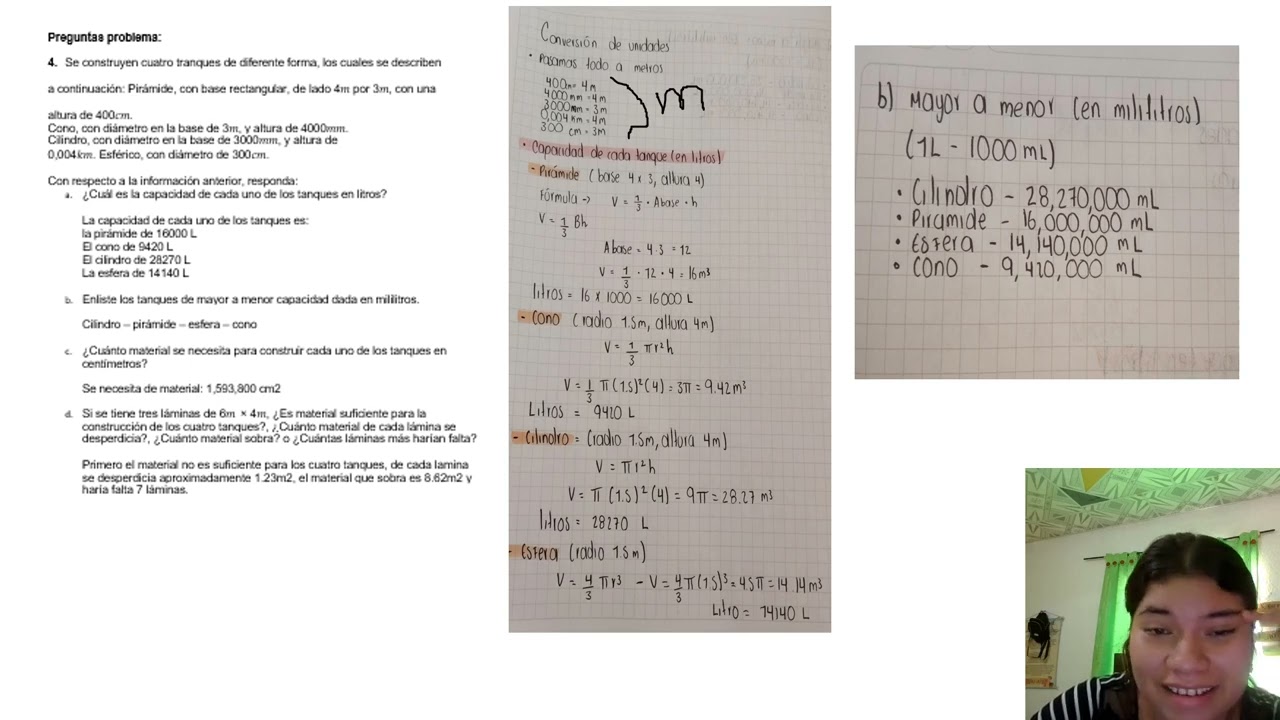 Preguntas problema:
4. Se construyen cuatro tranques de diferente forma, los cuales se describen
a continuación: Pirámide, con base rectangular, de lado 4m por 3m, con una
altura de 400cm.
Cono, con diámetro en la base de 3m, y altura de 4000mm.
Cilindro, con diámetro en la base de 3000mm, y altura de
0,004km. Esférico, con diámetro de 300cm.
Con respecto a la información anterior, responda:
a. ¿Cuál es la capacidad de cada uno de los tanques en litros?
La capacidad de cada uno de los tanques es:
la pirámide de 16000 L
El cono de 9420 L
El cilindro de 28270 L
La esfera de 14140 L
b. Enliste los tanques de mayor a menor capacidad dada en mililitros.
Cilindro – pirámide – esfera – cono
c. ¿Cuánto material se necesita para construir cada uno de los tanques en
centímetros?
Se necesita de material: 1,593,800 cm2
d. Si se tiene tres láminas de 6m × 4m, ¿Es material suficiente para la
construcción de los cuatro tanques?, ¿Cuánto material de cada lámina se
desperdicia?, ¿Cuánto material sobra? o ¿Cuántas láminas más harían falta?
Primero el material no es suficiente para los cuatro tanques, de cada lamina
se desperdicia aproximadamente 1.23m2, el material que sobra es 8.62m2 y
haría falta 7 láminas.
Conversión de unidades
• Pasamos todo a metros
400m= 4m
4000mm = 4m
3000mm = 3m
0,004 Km = 4m
300 cm = 3m
m
• Capacidad de cada tanque (en litros)
- Pirámide (base 4 x 3, altura 4)
Fórmula -> V = 1/3 · Abase · h
V = 1/3 Bh
Abase = 4·3 = 12
V = 1/3 · 12 · 4 = 16 m³
litros = 16 x 1000 = 16000 L
- Cono (radio 1.5m, altura 4m)
V = 1/3 πr²h
V = 1/3 π(1.5)²(4) = 3π = 9.42 m³
Litros = 9420 L
- Cilindro = (radio 1.5m, altura 4m)
V = πr²h
V = π (1.5)²(4) = 9π = 28.27 m³
litros = 28270 L
- Esfera (radio 1.5m)
V = 4/3 πr³ - V = 4/3 π(1.5)³ = 4.5π = 14.14 m³
Litro = 14140 L
b) Mayor a menor (en milifitros)
(1L - 1000 mL)
• Cilindro - 28,270,000 mL
• Piramide - 16,000,000 mL
• Esfera - 14,140,000 mL
• Cono - 9,420,000 mL